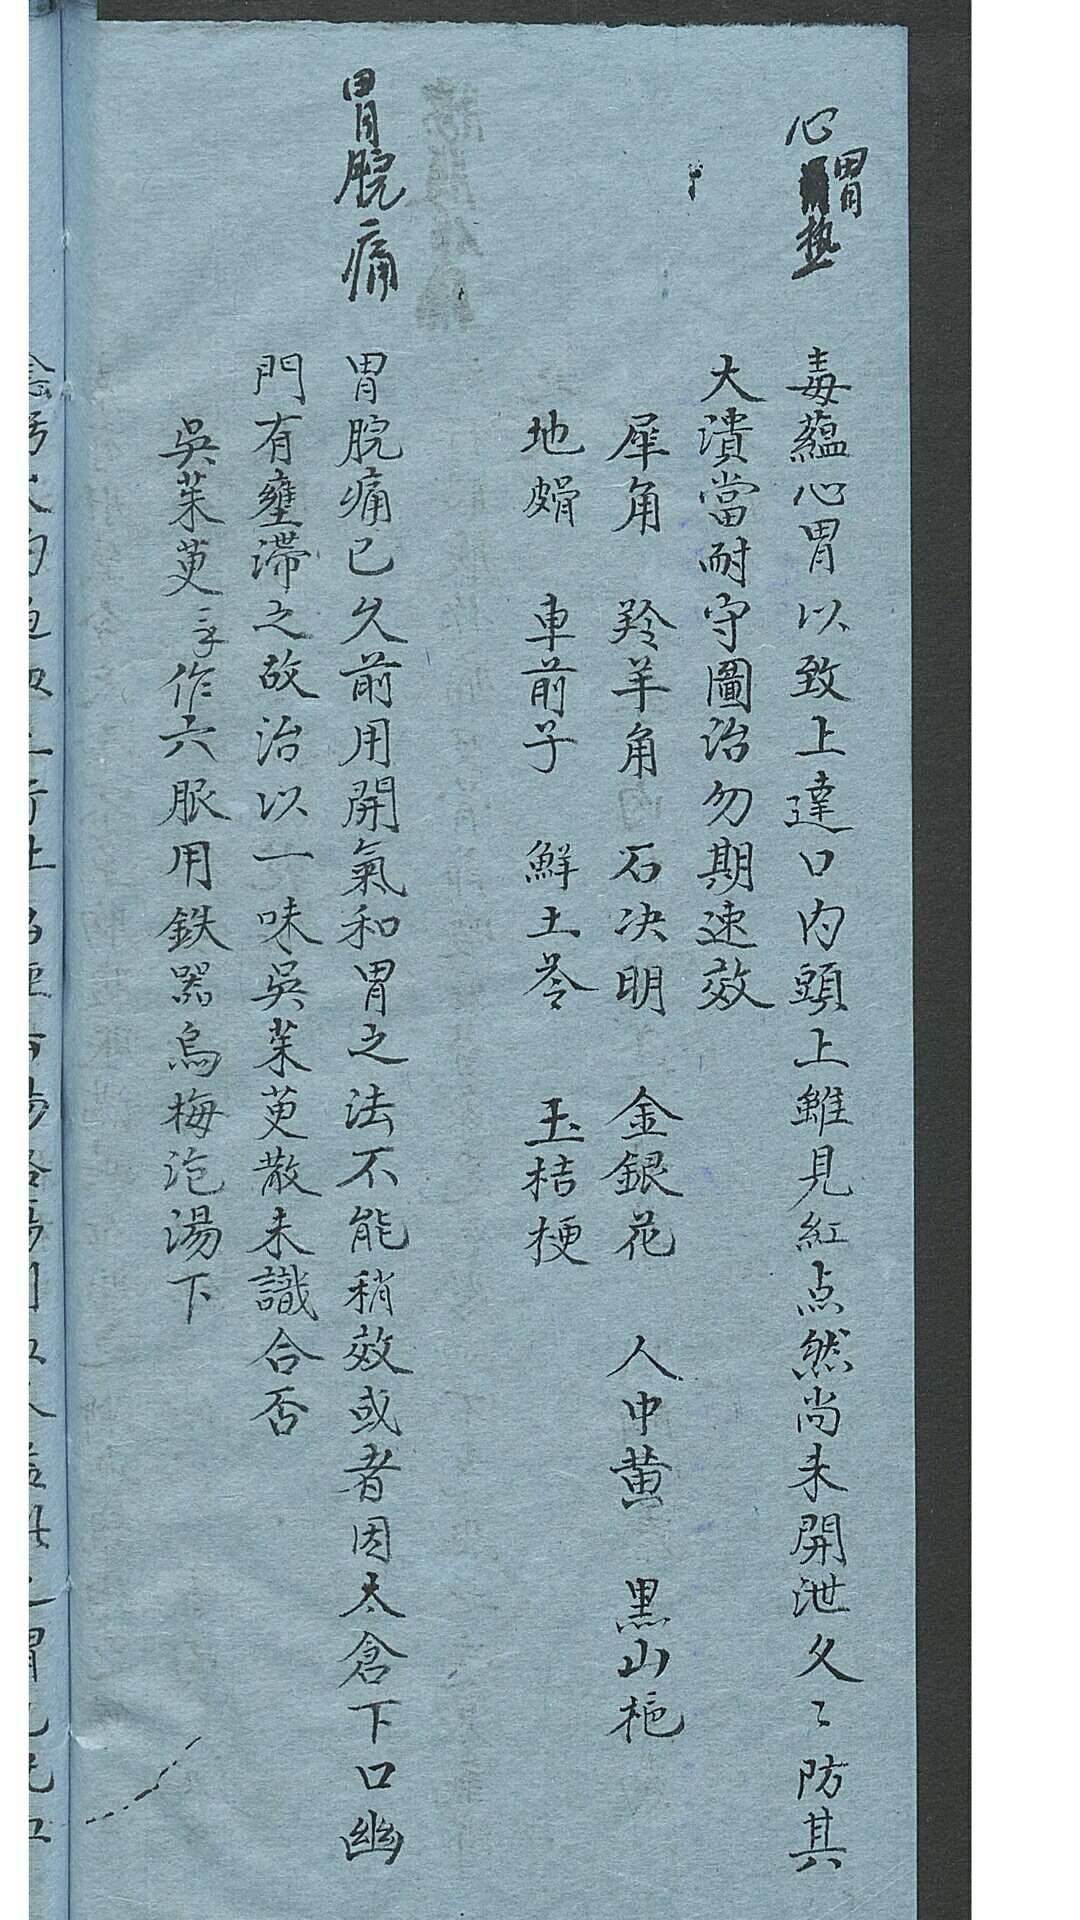 心胃热
毒蘊心胃以致上達口内頭上雖見紅点然尚未開泄久〻防其
大潰當耐守圖治勿期速效
犀角 羚羊角 石决明 金銀花 人中黄 黒山栀
地 車前子 鮮土苓 玉桔梗
胃脘痛
胃脘痛已久前用開氣和胃之法不能稍效或者因太倉下口幽
門有壅滞之故治以一味吳茱萸散未識合否
吳茱萸 作六服用鉄器烏梅泡湯下